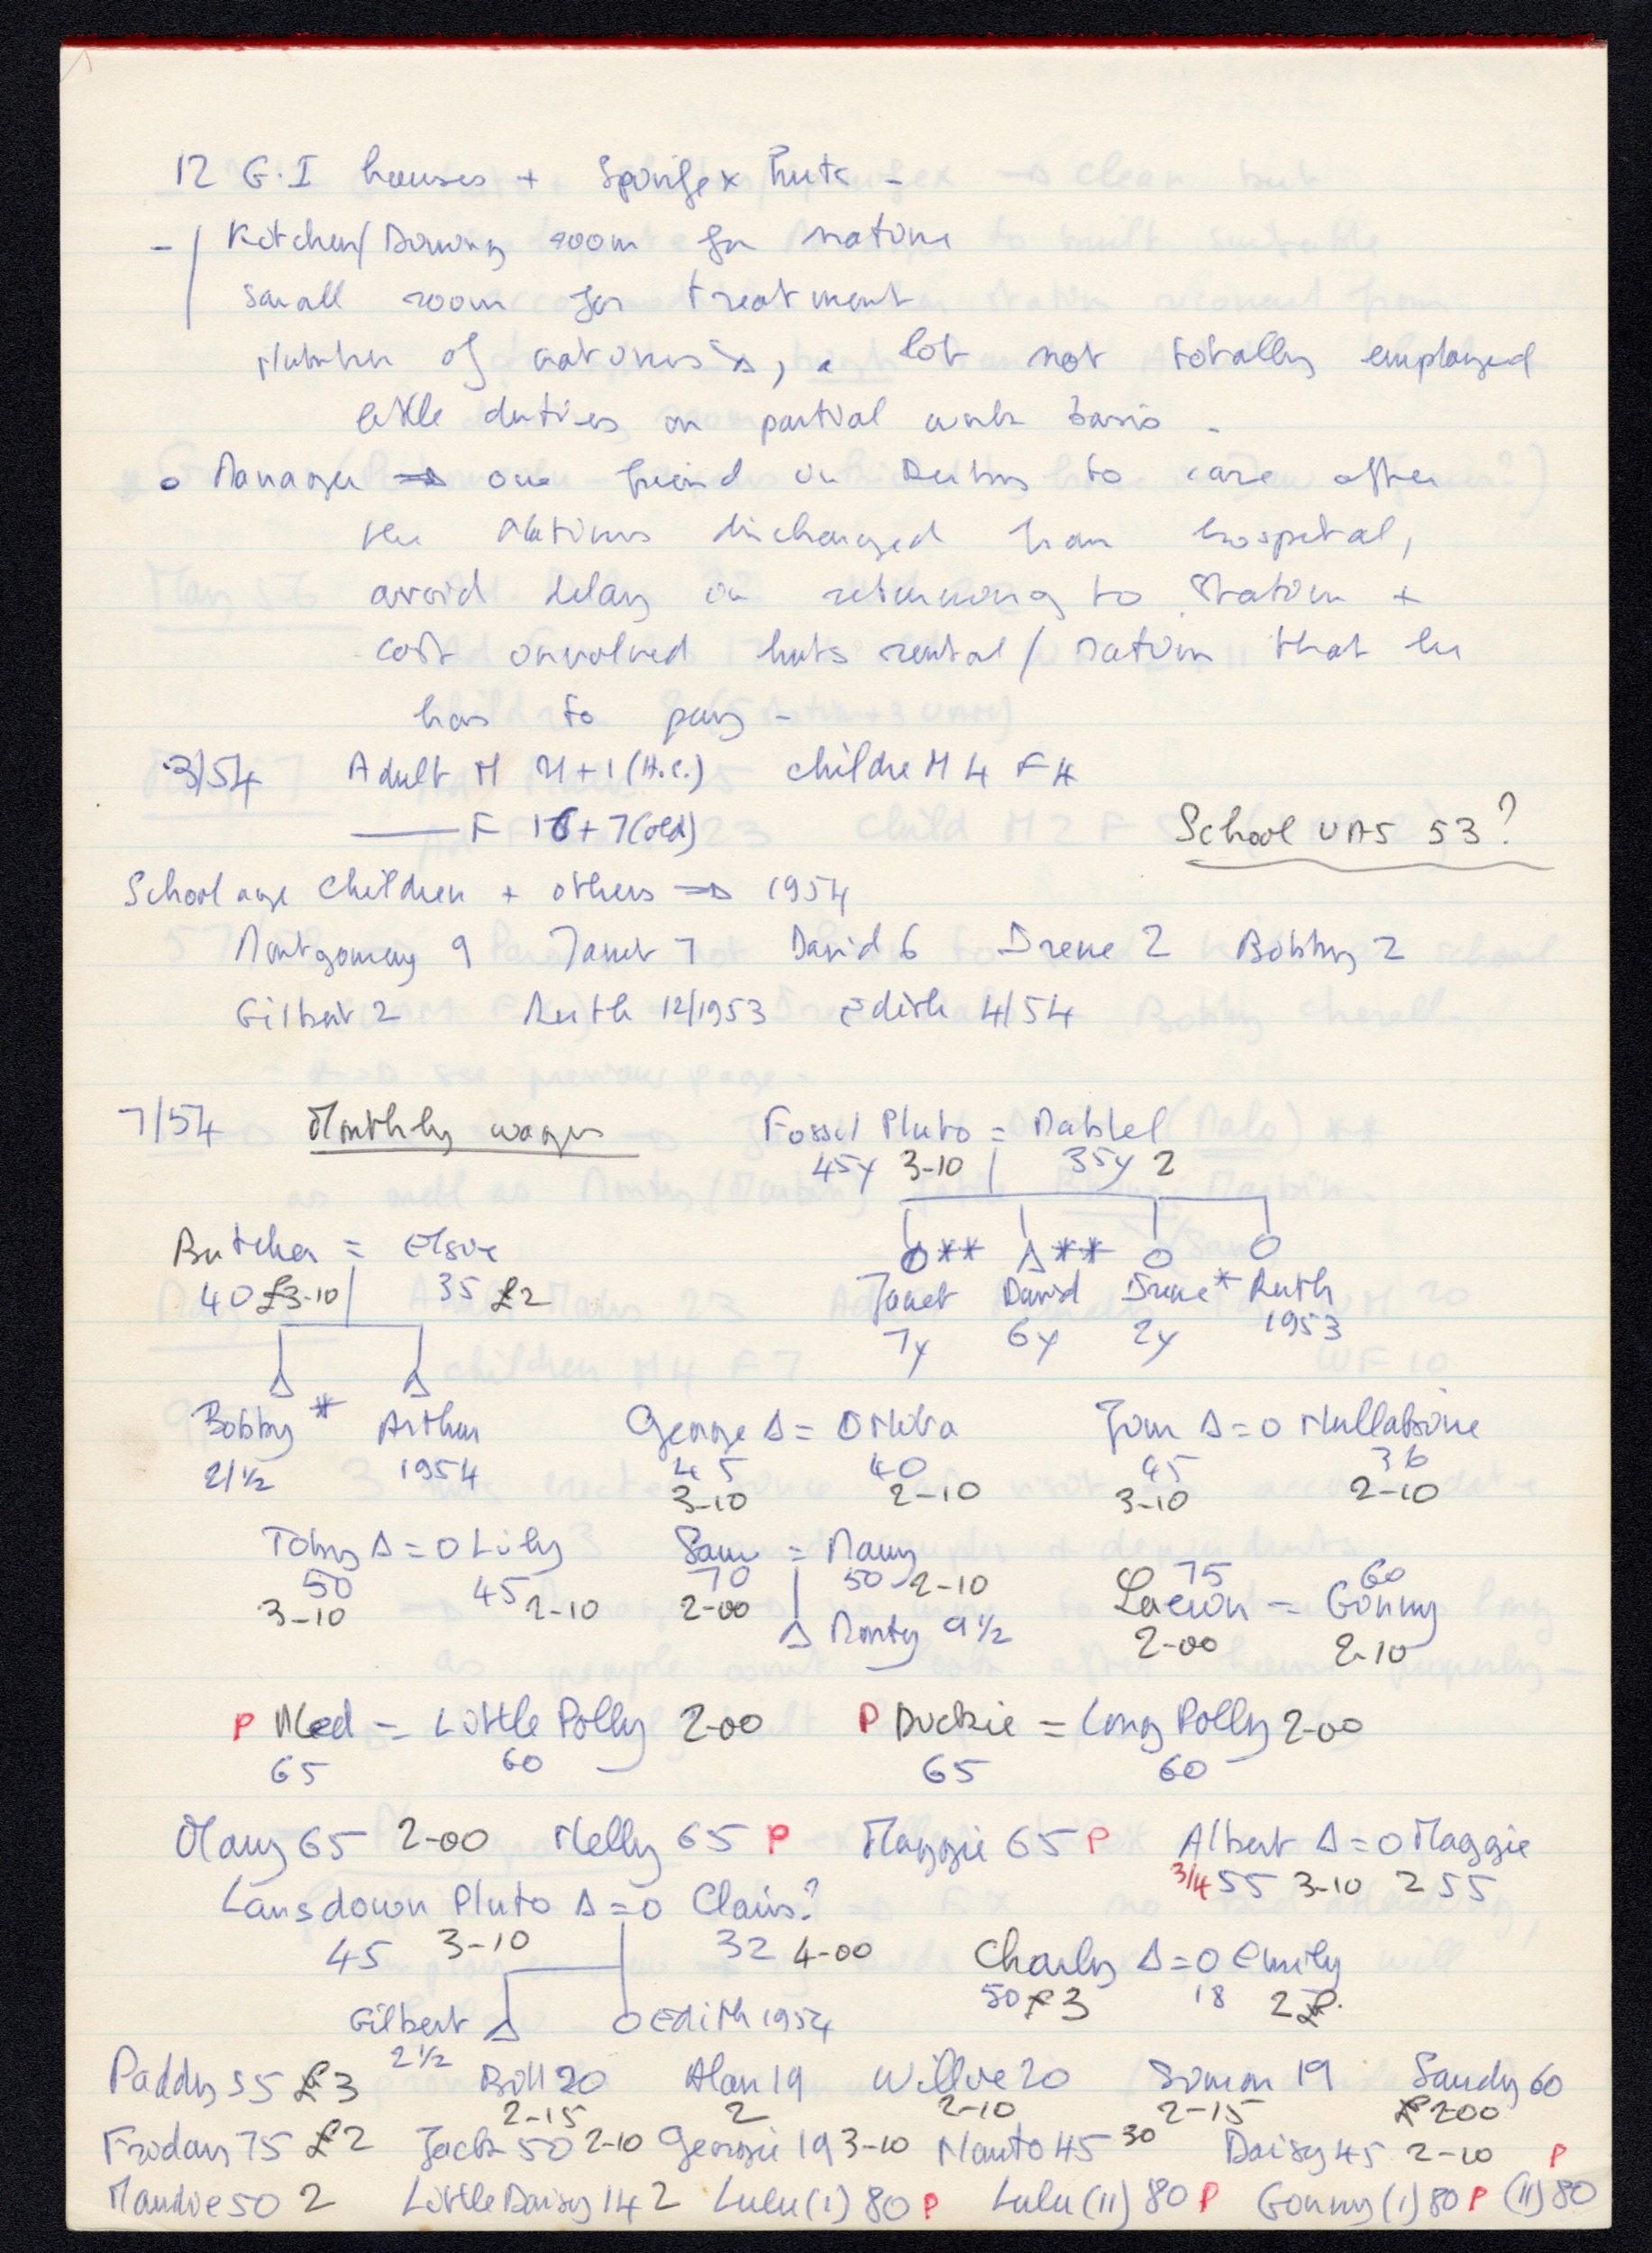 12 G.I houses + Spinifex huts -
- Kitchen/Dining room for natives
small room for treatment
Number of natives Δ, a lot not totally employed
little duties on partial work basis -
• Manager ⇒ one friend in Derby to care after
the natives discharged from hospital,
avoid delay in returning to station +
cost involved huts rental/ration that he
has to pay -
3/54 Adult M 21+1 (H.c.) children M 4 F 4
—— F 16+7(old)
School UAS 53?
School age children + others ⇒ 1954
Montgomery 9 Janet 7 David 6 Irene 2 Bobby 2
Gilbert 2 Ruth 12/1953 Edith 4/54
7/54 Monthly wages Fossil Pluto = Mabel
45y 3-10 35y 2
Butcher = Elsie O** Δ** O O
40 £3-10 35 £2 Janet David Irene* Ruth
7y 6y 2y 1953
Δ Δ
Bobby* Arthur George Δ=O Nora Jim Δ=O Nullabine
2/½ 1954 45 40 45 36
3-10 2-10 3-10 2-10
Toby Δ=O Lily Sam = Mary 75 60
50 45 70 50 2-10 = Ginny
3-10 2-10 2-00 Δ Monty 9½ 2-00 2-10
P Ned = Little Polly 2-00 P Duckie = Long Polly 2-00
65 60 65 60
Mary 65 2-00 Nelly 65 P Maggie 65 P Albert Δ=O Maggie
3/4 55 3-10 2 55
Lansdown Pluto Δ=O Clair?
45 3-10 32 4-00 Charly Δ=O Emily
50 £3 18 2£
Gilbert Δ O Edith 1954
2½
Paddy 55 £3 Bill 20 Alan 19 Willie 20 Simon 19 Sandy 60
2-15 2 2-10 2-15 £200
Friday 75 £2 Jack 50 2-10 Georgie 19 3-10 Nanto 45 30 Daisy 45 2-10 P
Maudie 50 2 Little Daisy 14 2 Lulu (I) 80 P Lulu (II) 80 P Ginny (I) 80 P (II) 80